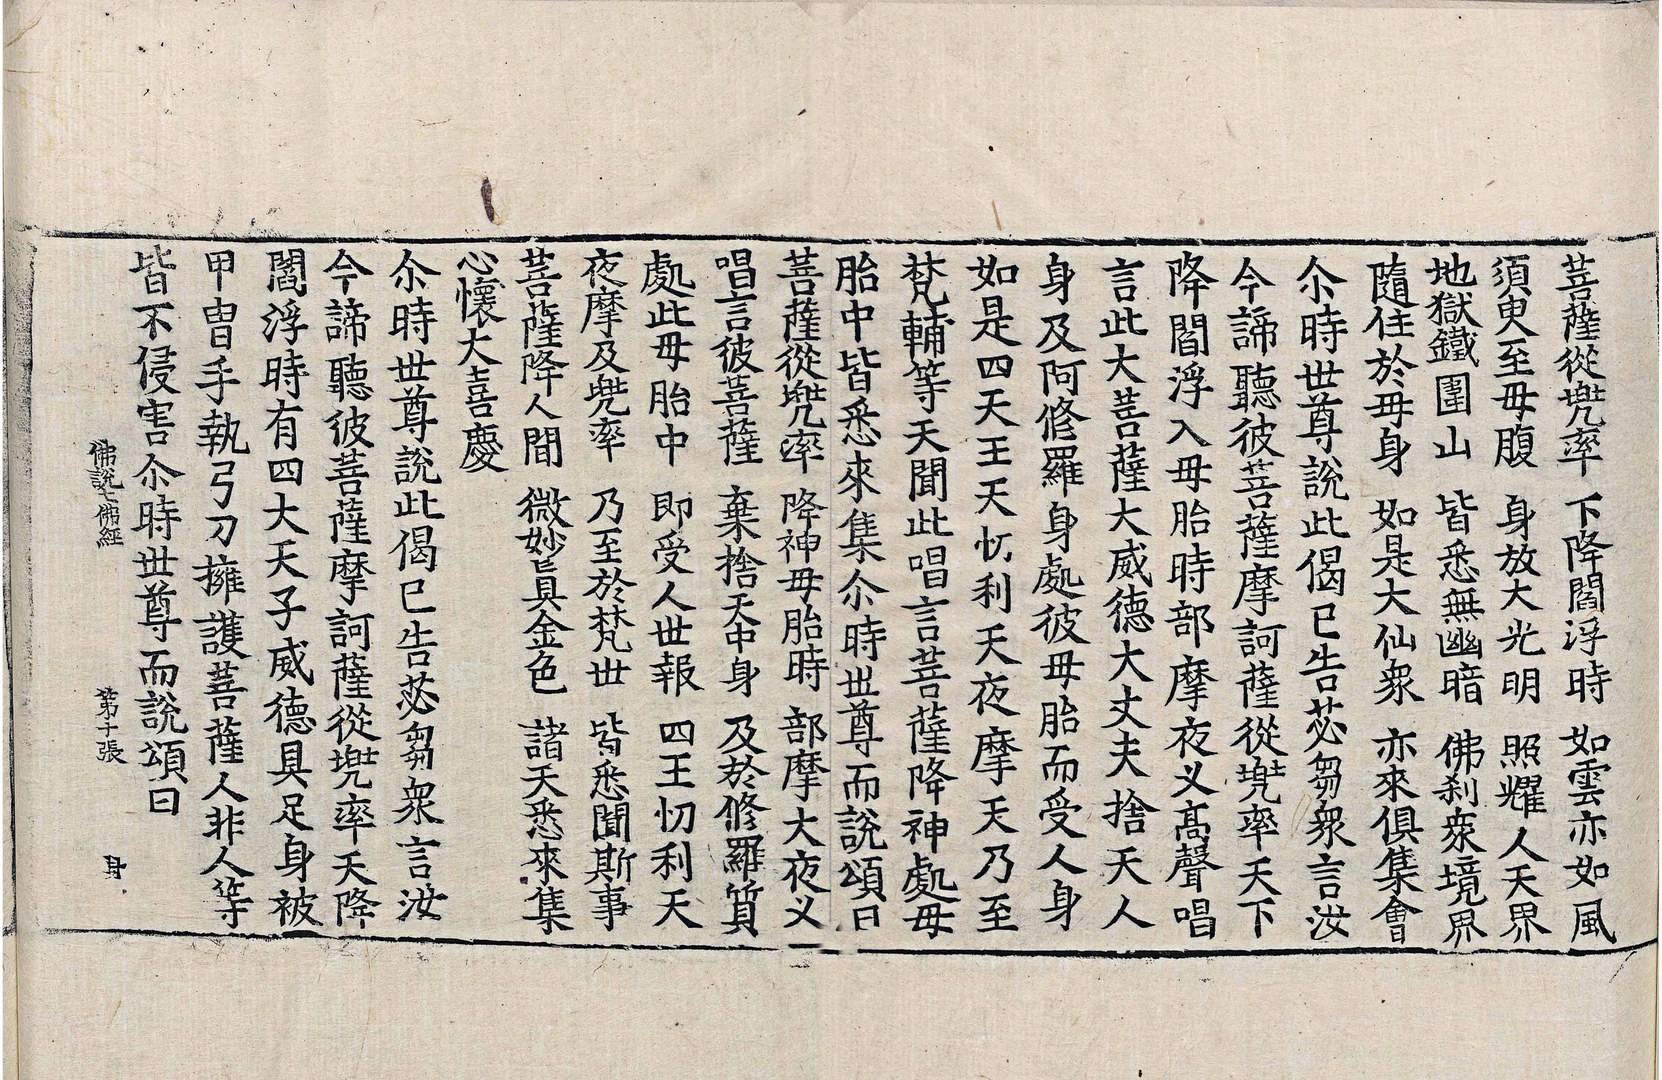 菩薩從兠率 下降閻浮時 如雲亦如風
須臾至母腹 身放大光明 照耀人天界
地獄鐵圍山 皆悉無幽暗 佛刹衆境界
隨住於母身 如是大仙衆 亦來俱集會
尒時世尊說此偈已告苾芻衆言汝
今諦聽彼菩薩摩訶薩從兠率天下
降閻浮入母胎時部摩夜义髙聲唱
言此大菩薩大威德大丈夫捨天人
身及阿修羅身處彼母胎而受人身
如是四天王天忉利天夜摩天乃至
梵輔等天聞此唱言菩薩降神處母
胎中皆悉來集尒時世尊而說頌曰
菩薩從兠率 降神母胎時 部摩大夜义
唱言彼菩薩 棄捨天中身 及於修羅質
處此母胎中 即受人世報 四王忉利天
夜摩及兠率 乃至於梵世 皆悉聞斯事
菩薩降人間 微妙真金色 諸天悉來集
心懷大喜慶
尒時世尊說此偈已告苾芻衆言汝
今諦聽彼菩薩摩訶薩從兠率天降
閻浮時有四大天子威德具足身被
甲冑手執弓刀擁護菩薩人非人等
皆不侵害尒時世尊而說頌曰
佛說七佛經 第十張 身